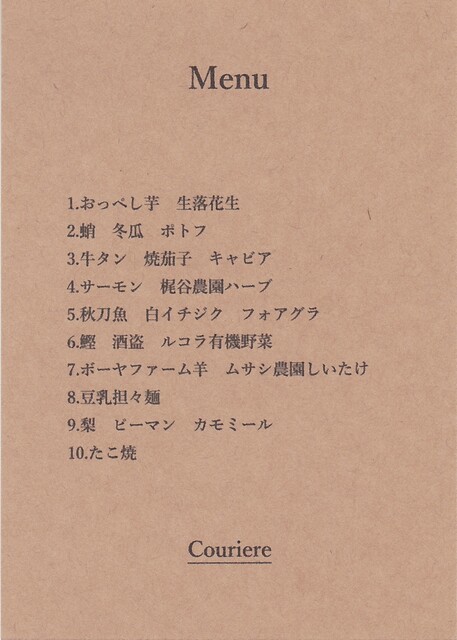 Menu
1.おっぺし芋　生落花生
2.蛸　冬瓜　ポトフ
3.牛タン　焼茄子　キャビア
4.サーモン　梶谷農園ハーブ
5.秋刀魚　白イチジク　フォアグラ
6.鰹　酒盗　ルコラ有機野菜
7.ボーヤファーム羊　ムサシ農園しいたけ
8.豆乳担々麺
9.梨　ピーマン　カモミール
10.たこ焼
Couriere